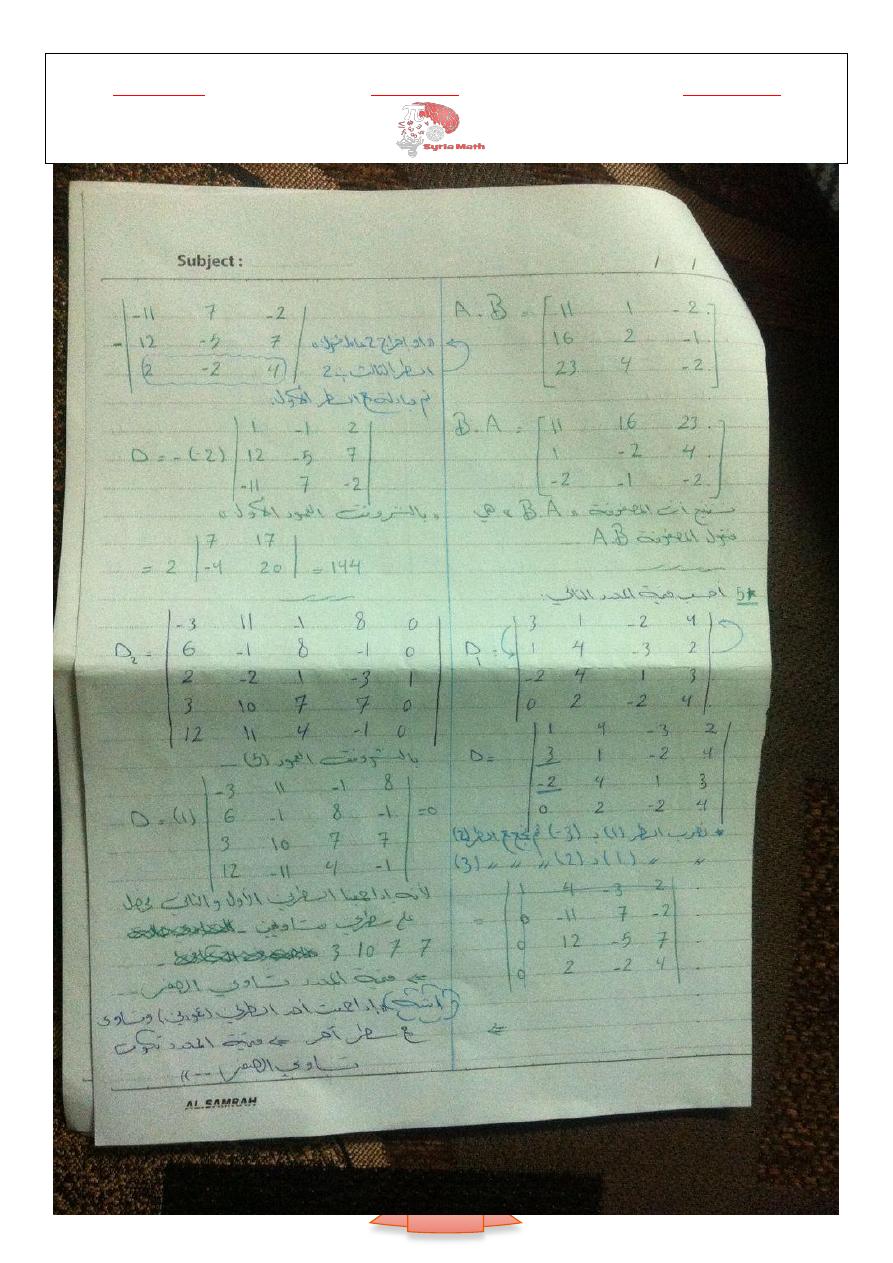 Syria Math
Subject :
/ /
A.B = [11 1 -2
16 2 -1
23 4 -2]
B.A = [11 16 23
1 -2 4
-2 -1 -2]
نستنتج أن المصفوفة «B.A» هي
منقول المصفوفة A.B
5* احسب قيمة المحدد التالي:
D₁ = |3 1 -2 4|
|1 4 -3 2|
|-2 4 1 3|
|0 2 -2 4|
D = |1 4 -3 2|
|3 1 -2 4|
|-2 4 1 3|
|0 2 -2 4|
* نضرب السطر (1) بـ (-3) ثم نجمع مع السطر (2)
" " (1) بـ (2) " " " (3)
= |1 4 -3 2|
|0 -11 7 -2|
|0 12 -5 7|
|0 2 -2 4|
⇐
- |-11 7 -2|
|12 -5 7|
|2 -2 4|
السطر الثالث بـ 2
ثم مبادلة مع السطر الأول.
D = -(-2) |1 -1 2|
|12 -5 7|
|-11 7 -2|
«بالنشر وفق العمود الأول»
= 2 |7 17|
|-4 20| = 144
D₂ = |-3 11 -1 8 0|
|6 -1 8 -1 0|
|2 -2 1 -3 1|
|3 10 7 7 0|
|12 11 4 -1 0|
بالنشر وفق العمود (5) ـ
D = (1) |-3 11 -1 8|
|6 -1 8 -1|
|3 10 7 7|
|12 -11 4 -1| =0
لأنه إذا جمعنا السطرين الأول والثاني نحصل
على سطرين متساويين
3 10 7 7
⇐ قيمة المحدد تساوي الصفر ...
أستنتج إذا جمعت أحد السطرين (عمودين) وتساوى
مع سطر آخر ⇐ قيمة المحدد تكون
تساوي الصفر ...»
AL.SAMRAH